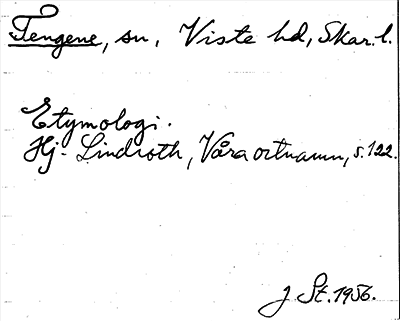 Tengene, sn, Viste hd, Skar. l.
Etymologi.
Hj. Lindroth, Våra ortnamn, s. 122.
J St. 1956.